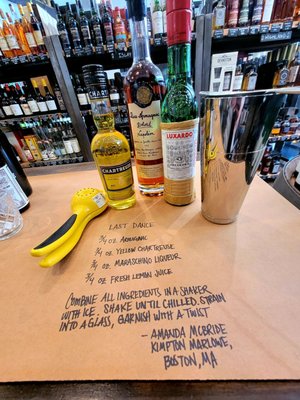 CHARTREUSE
LUXARDO
LAST DANCE
3/4 oz ARMAGNAC
3/4 oz YELLOW CHARTREUSE
3/4 oz MARASCHINO LIQUEUR
3/4 oz FRESH LEMON JUICE
COMBINE ALL INGREDIENTS IN A SHAKER
WITH ICE. SHAKE UNTIL CHILLED. STRAIN
INTO A GLASS, GARNISH WITH A TWIST
- AMANDA MCBRIDE
KIMPTON MARLOWE,
BOSTON, MA